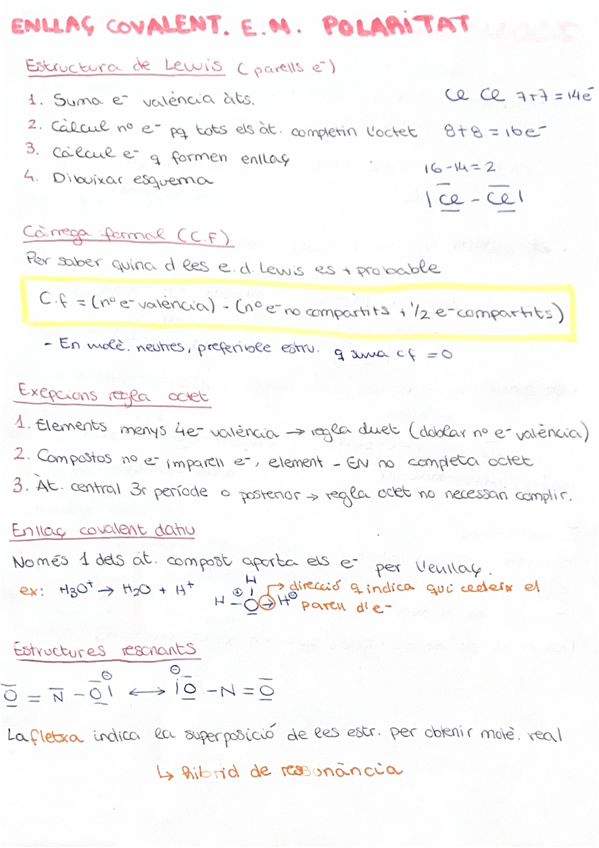 ENLLAÇ COVALENT. E.M. POLARITAT
Estructura de Lewis (parells e⁻)
1. Suma e⁻ valència àts.
Cl Cl 7+7=14e⁻
2. Càlcul nº e⁻ pq tots els àt. completin l'octet
8+8=16e⁻
3. Càlcul e⁻ q formen enllaç
16-14=2
4. Dibuixar esquema
|Cl - Cl|
Càrrega formal (C.F)
Per saber quina d les e.d. Lewis es + probable
C.f = (nº e⁻ valència) - (nº e⁻ no compartits + 1/2 e⁻ compartits)
- En molè. neutres, preferible estru. q suma cf = 0
Exepcions regla octet
1. Elements menys 4e⁻ valència → regla duet (doblar nº e⁻ valència)
2. Compostos nº e⁻ imparell e⁻, element - EN no completa octet
3. Àt. central 3r període o posterior → regla octet no necessari complir.
Enllaç covalent datiu
Només 1 dels àt. compost aporta els e⁻ per l'enllaç.
ex: H₃O⁺ → H₂O + H⁺
H
H - O → H⊕
direcció q indica qui cedeix el
parell d'e⁻
Estructures resonants
O = N - O| ⟷ |O - N = O
La fletxa indica la superposició de les estr. per obtenir molè. real
↳ Híbrid de ressonància